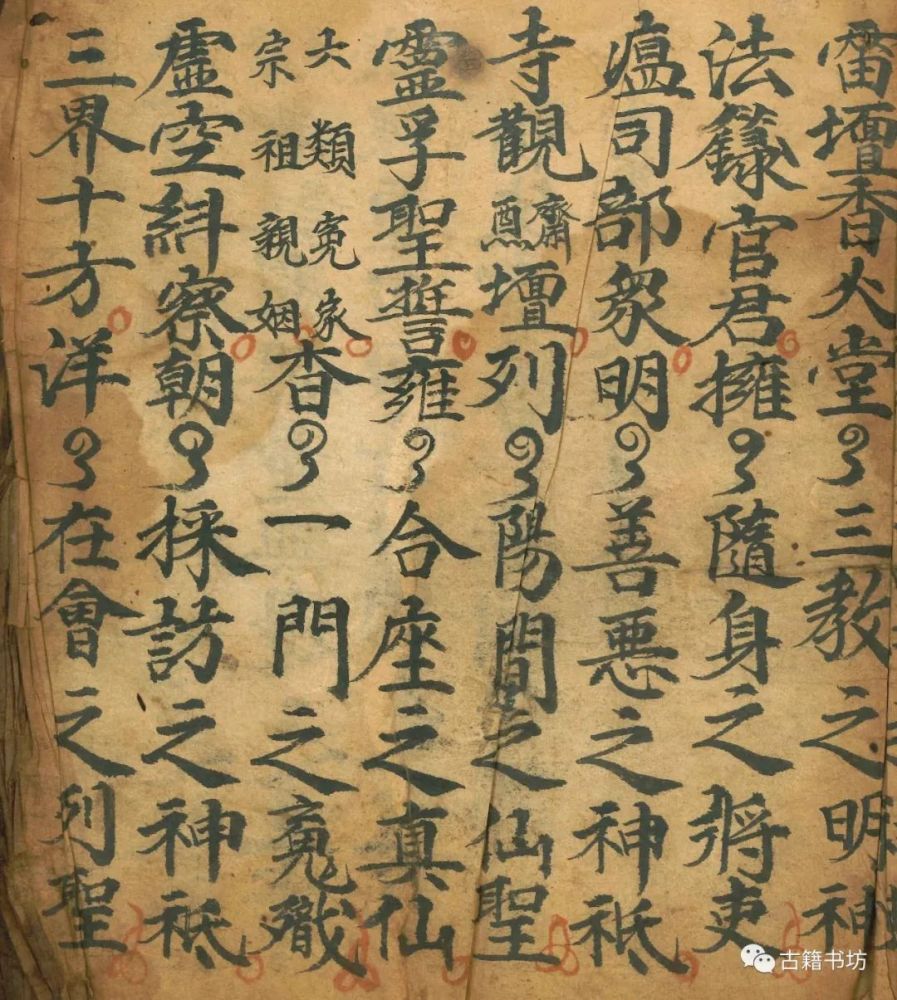 雷壇香火堂々三教之明神
法籙官君擁々隨身之將吏
瘟司部眾明々善惡之神祇
寺觀齋醮壇列々陽間之仙聖
靈孚聖誓雍々合座之真仙
六類冤家宗祖親姻杳々一門之
虛空糾察朝々採訪之神祇
三界十方洋々在會之列聖
古籍书坊